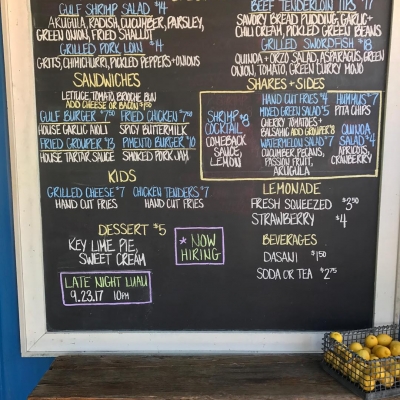 GULF SHRIMP SALAD $14
ARUGULA, RADISH, CUCUMBER, PARSLEY,
GREEN ONION, FRIED SHALLOT
GRILLED PORK LOIN $14
GRITS, CHIMICHURRI, PICKLED PEPPERS + ONIONS
SANDWICHES
LETTUCE, TOMATO, BRIOCHE BUN
ADD CHEESE OR BACON $1.50
GULF BURGER $7.50
HOUSE GARLIC AIOLI
FRIED CHICKEN $7.50
SPICY BUTTERMILK
FRIED GROUPER $13
HOUSE TARTAR SAUCE
PIMENTO BURGER $10
SMOKED PORK JAM
KIDS
GRILLED CHEESE $7
HAND CUT FRIES
CHICKEN TENDERS $7
HAND CUT FRIES
DESSERT $5
KEY LIME PIE,
SWEET CREAM
* NOW
HIRING
LATE NIGHT LUAU
9.23.17 10PM
BEEF TENDERLOIN TIPS $17
SAVORY BREAD PUDDING, GARLIC +
CHILI CREAM, PICKLED GREEN BEANS
GRILLED SWORDFISH $18
QUINOA + ORZO SALAD, ASPARAGUS, GREEN
ONION, TOMATO, GREEN CURRY MOJO
SHARES + SIDES
SHRIMP $8
COCKTAIL
COMEBACK
SAUCE,
LEMON
HAND CUT FRIES $4
MIXED GREEN SALAD $5
CHERRY TOMATOES +
BALSAMIC ADD GROUPER $8
WATERMELON SALAD $7
CUCUMBER, PECANS,
PASSION FRUIT,
ARUGULA
HUMMUS $7
PITA CHIPS
QUINOA
SALAD $4
APRICOTS,
CRANBERRY
LEMONADE
FRESH SQUEEZED $3.50
STRAWBERRY $4
BEVERAGES
DASANI $1.50
SODA OR TEA $2.75